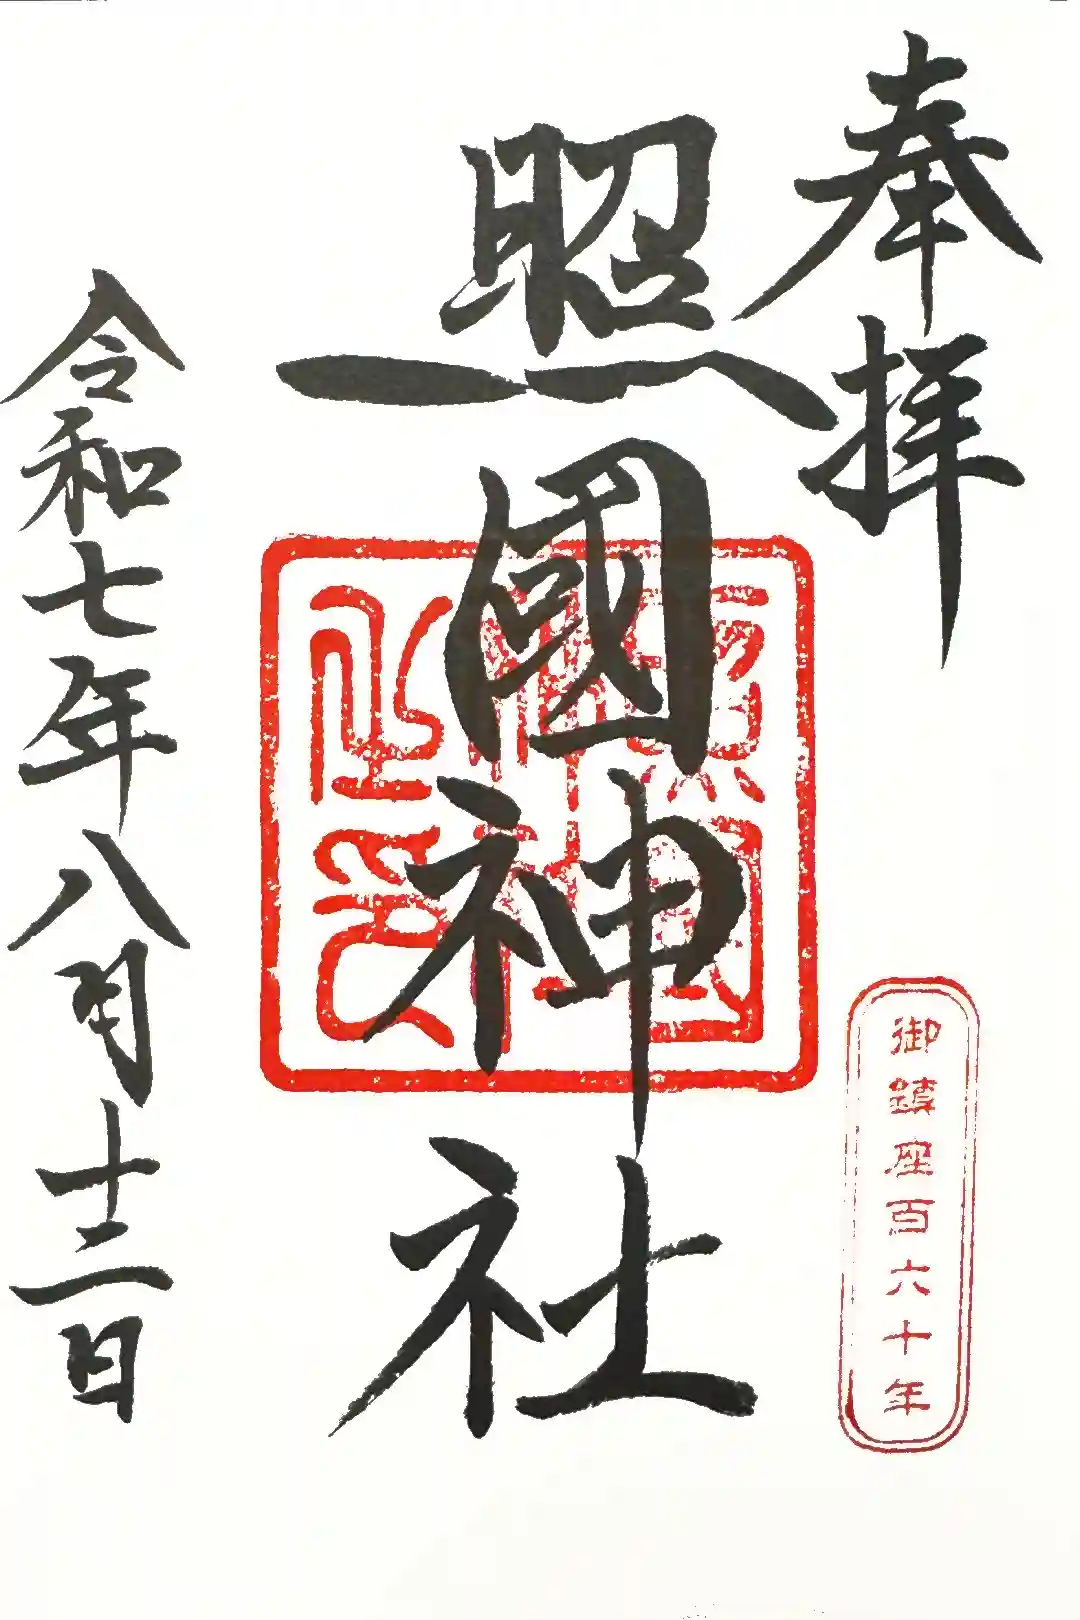 奉拝
御鎮座百六十年
照國神社
照國神社之印
令和七年八月十二日